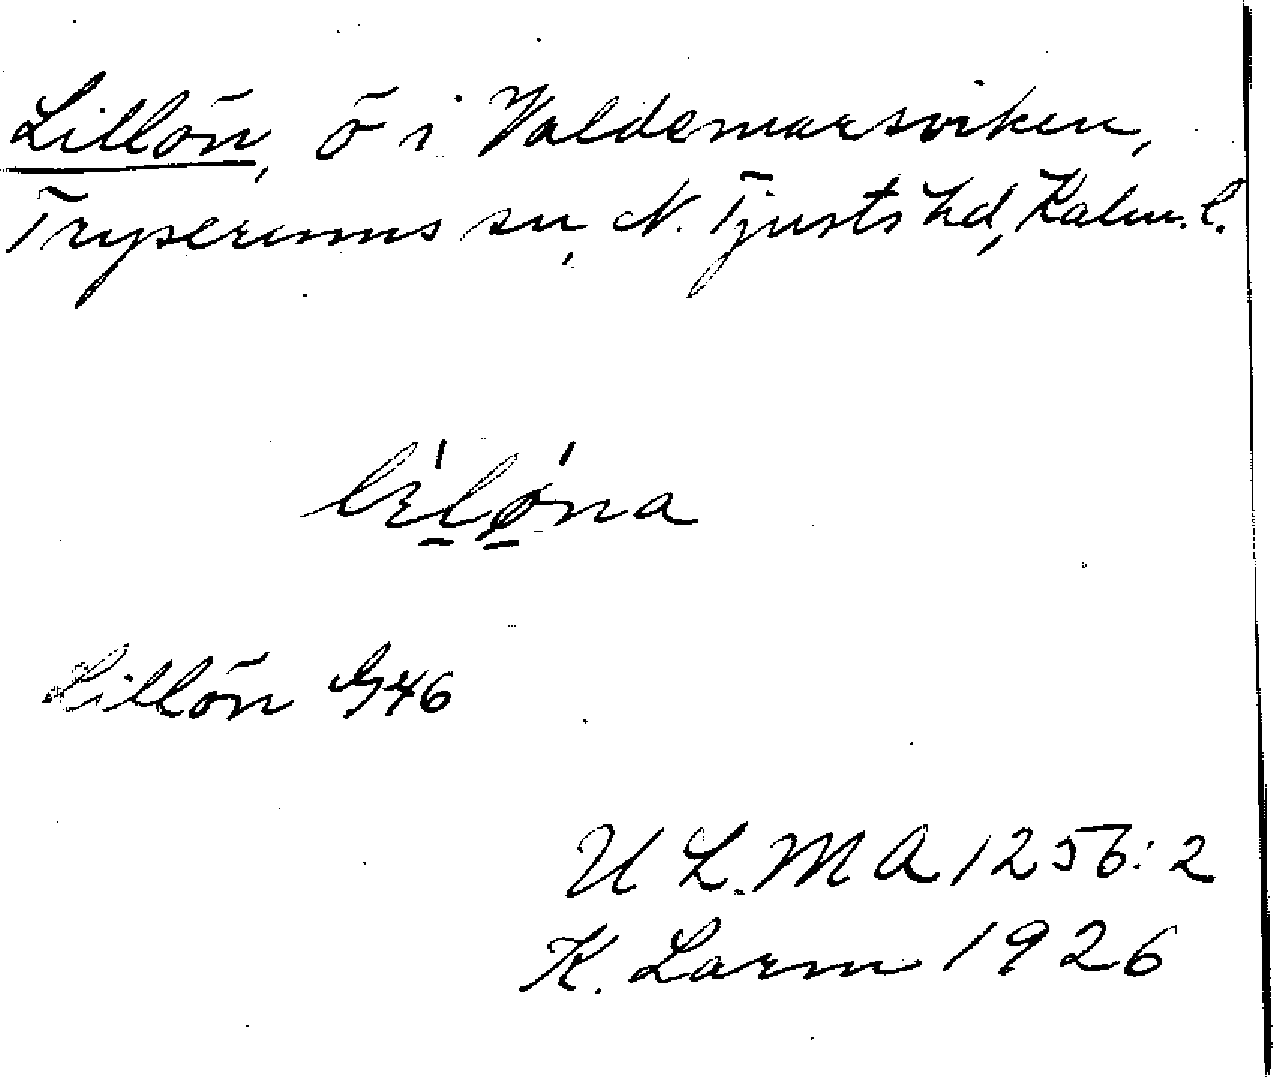 Lillön, ö i Valdemarsviken,
Tryserums sn, N. Tjusts hd, Kalm. l.
lìløna
Lillön G46
U L. M A 1256:2
K. Larm 1926